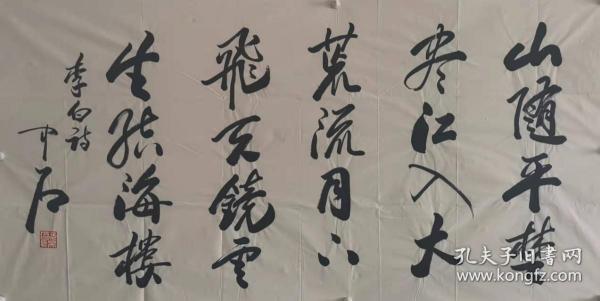 山隨平埜
尽江入大
荒流月下
飛天鏡雲
生結海樓
李白詩
中石
孔夫子旧书网
www.kongfz.com